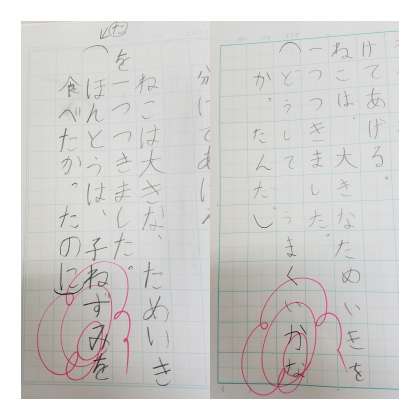 けてあげる。
ねこは、大きなためいきを
一つつきました。
(どうしてうまくいかな
か。たんだ。)
分けてあげ
ねこは大きな、ためいき
を一つつきました。
(ほんとうは、子ねずみを
食べたか。たのに)